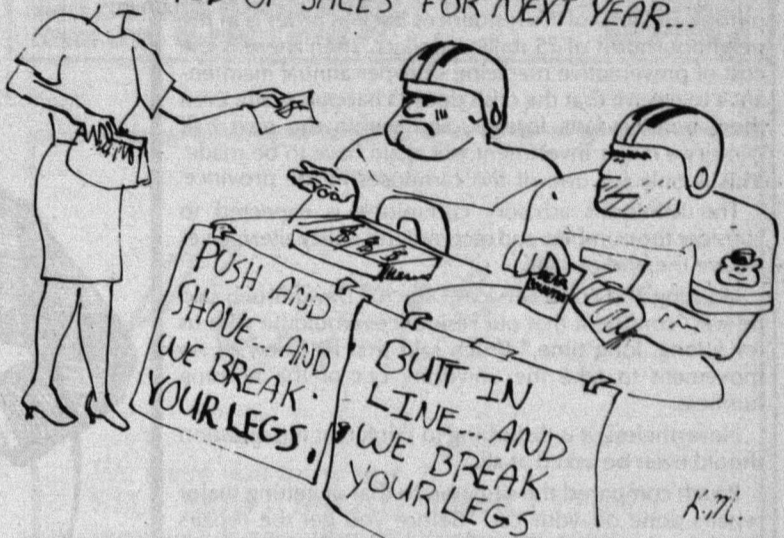 OF SALES FOR NEXT YEAR...
$ $ $
PUSH AND
SHOVE...AND
WE BREAK
YOUR LEGS.
BUTT IN
LINE...AND
WE BREAK
YOUR LEGS